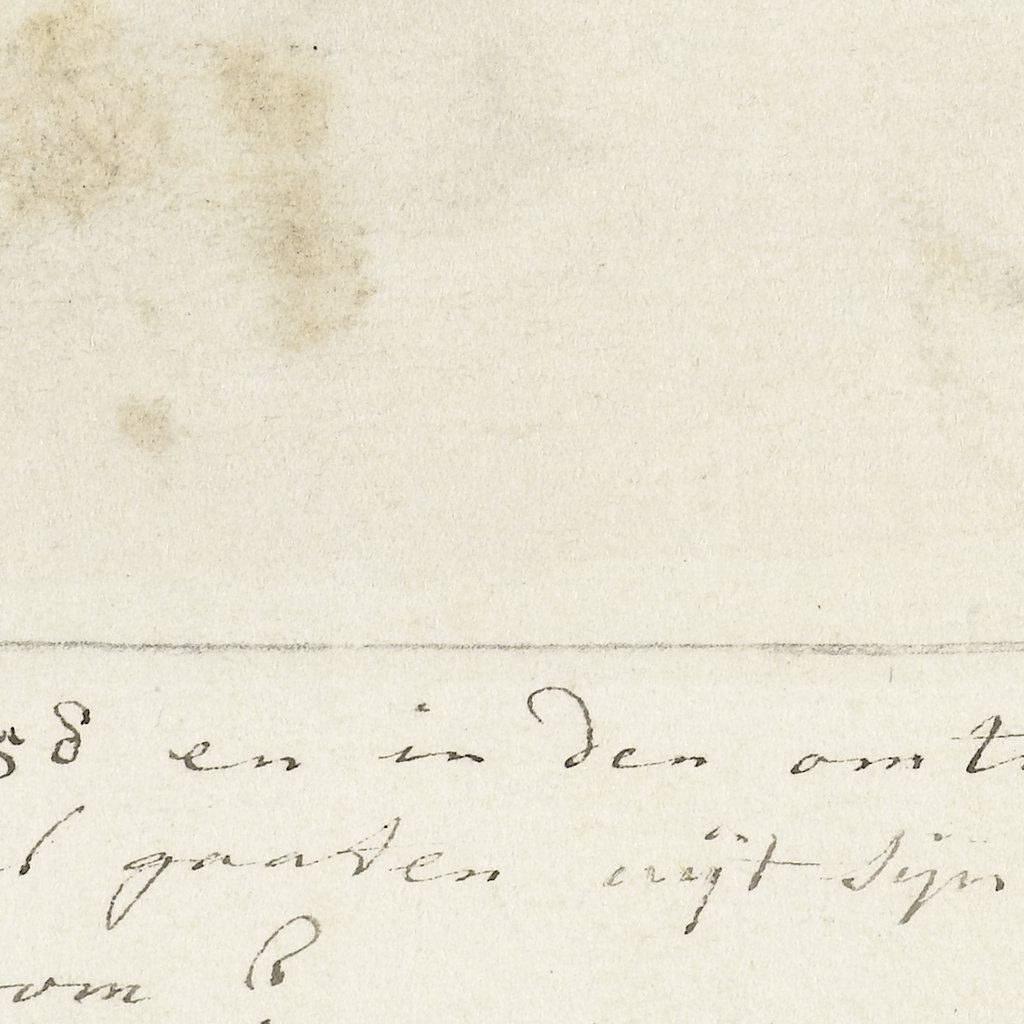 58 en in den omt
gaaten uijt sijn
om